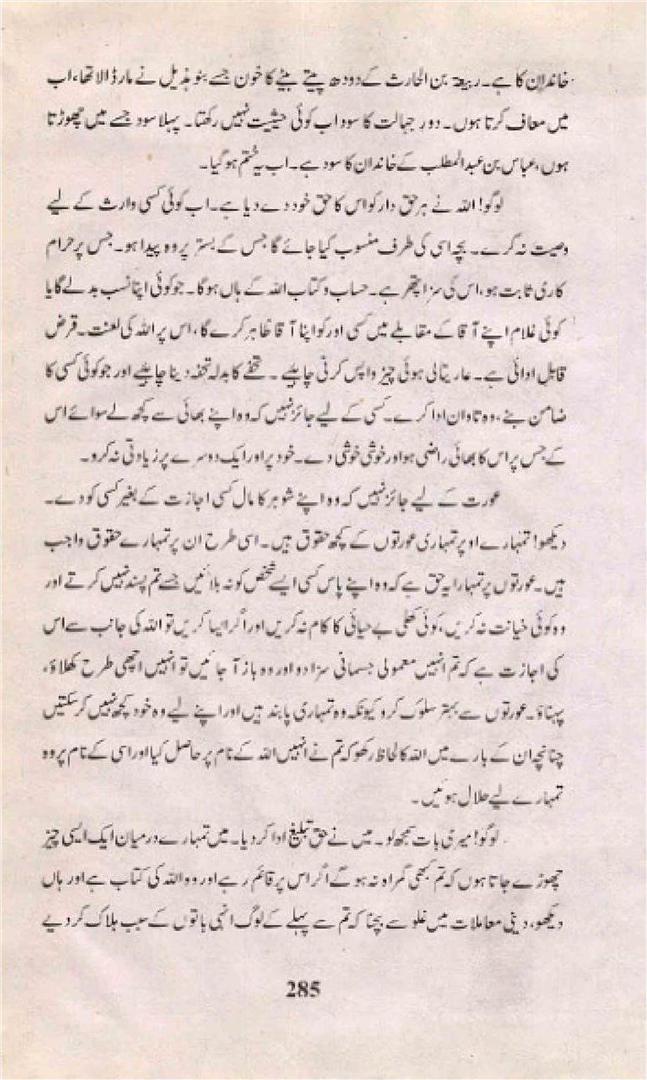 خاندان کا ہے۔ ربیعہ بن الحارث کے دودھ پیتے بیٹے کا خون جسے بنو ہذیل نے مار ڈالا تھا، اب
میں معاف کرتا ہوں۔ دور جہالت کا سود اب کوئی حیثیت نہیں رکھتا۔ پہلا سود جسے میں چھوڑتا
ہوں، عباس بن عبدالمطلب کے خاندان کا سود ہے۔ اب یہ ختم ہو گیا۔
لوگو! اللہ نے ہر حق دار کو اس کا حق خود دے دیا ہے۔ اب کوئی کسی وارث کے لیے
وصیت نہ کرے۔ بچہ اسی کی طرف منسوب کیا جائے گا جس کے بستر پر وہ پیدا ہو۔ جس پر حرام
کاری ثابت ہو، اس کی سزا پتھر ہے۔ حساب و کتاب اللہ کے ہاں ہوگا۔ جو کوئی اپنا نسب بدلے گا یا
کوئی غلام اپنے آقا کے مقابلے میں کسی اور کو اپنا آقا ظاہر کرے گا، اس پر اللہ کی لعنت۔ قرض
قابل ادائی ہے۔ عاریتا لی ہوئی چیز واپس کرنی چاہیے۔ تحفے کا بدلہ تحفہ دینا چاہیے اور جو کوئی کسی کا
ضامن بنے، وہ تاوان ادا کرے۔ کسی کے لیے جائز نہیں کہ وہ اپنے بھائی سے کچھ لے سوائے اس
کے جس پر اس کا بھائی راضی ہو اور خوشی خوشی دے۔ خود پر اور ایک دوسرے پر زیادتی نہ کرو۔
عورت کے لیے جائز نہیں کہ وہ اپنے شوہر کا مال کسی اجازت کے بغیر کسی کو دے۔
دیکھو! تمہارے اوپر تمہاری عورتوں کے کچھ حقوق ہیں۔ اسی طرح ان پر تمہارے حقوق واجب
ہیں۔ عورتوں پر تمہارا یہ حق ہے کہ وہ اپنے پاس کسی ایسے شخص کو نہ بلائیں جسے تم پسند نہیں کرتے اور
وہ کوئی خیانت نہ کریں، کوئی کھلی بے حیائی کا کام نہ کریں اور اگر ایسا کریں تو اللہ کی جانب سے اس
کی اجازت ہے کہ تم انہیں معمولی جسمانی سزا دو اور وہ باز آ جائیں تو انہیں اچھی طرح کھلاؤ،
پہناؤ۔ عورتوں سے بہتر سلوک کرو کیونکہ وہ تمہاری پابند ہیں اور اپنے لیے وہ خود کچھ نہیں کر سکتیں
چنانچہ ان کے بارے میں اللہ کا لحاظ رکھو کہ تم نے انہیں اللہ کے نام پر حاصل کیا اور اسی کے نام پر وہ
تمہارے لیے حلال ہوئیں۔
لوگو! میری بات سمجھ لو۔ میں نے حق تبلیغ ادا کر دیا۔ میں تمہارے درمیان ایک ایسی چیز
چھوڑے جاتا ہوں کہ تم کبھی گمراہ نہ ہو گے اگر اس پر قائم رہے اور وہ اللہ کی کتاب ہے اور ہاں
دیکھو، دینی معاملات میں غلو سے بچنا کہ تم سے پہلے کے لوگ انہی باتوں کے سبب ہلاک کر دیے
285